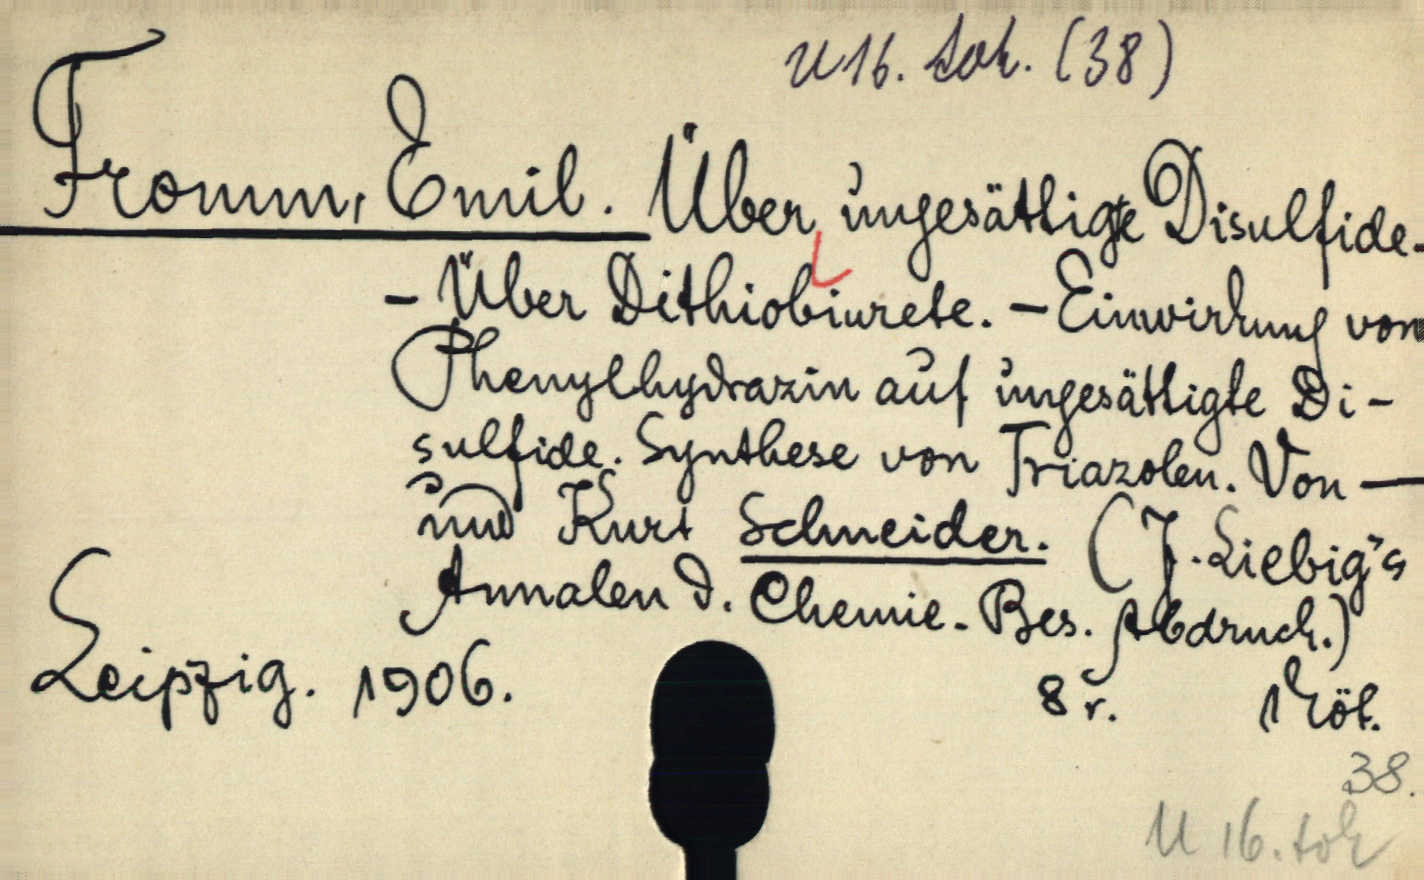 U 16. tok. (38)
Fromm, Emil. Über ungesättigte Disulfide.
- Über Dithiobiurete. - Einwirkung von
Phenylhydrazin auf ungesättigte Di-
sulfide. Synthese von Triazolen. Von —
und Kurt Schneider. (J. Liebig's
Annalen d. Chemie. Bes. Abdruck.)
Leipzig. 1906. 8 r. 1 köt.
38.
U 16. tok